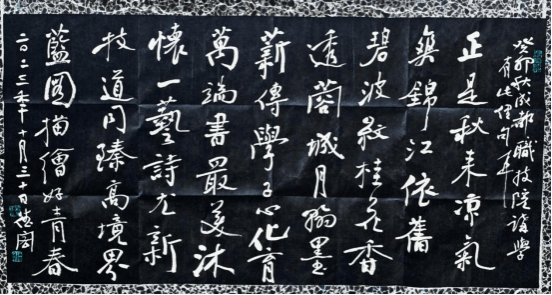 癸卯秋成都職技院講學
有此得句
正是秋来凉氣
爽錦江依舊
碧波紋桂花香
透蓉城月翰墨
薪傳學子心化育
萬端書最美沐
懷一藝詩尤新
技道同臻高境界
藍圖描繪好青春
二〇二三年十月三十日